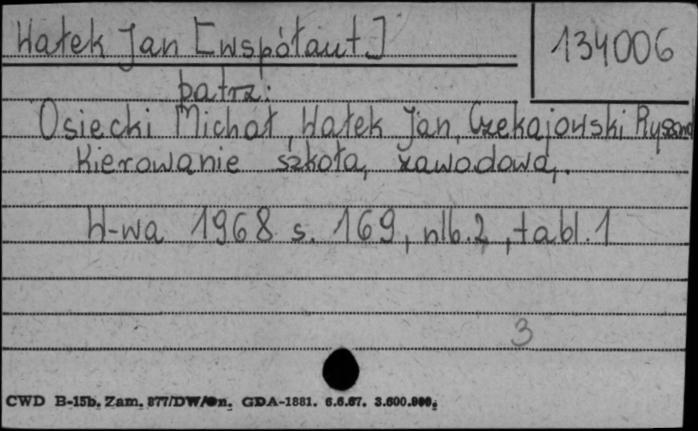 Wałek Jan [współaut]
134006
patrz:
Osiecki Michał, Wałek Jan, Czekajowski Ryszard
Kierowanie szkołą zawodową.
W-wa 1968 s. 169, nlb. 2, tabl. 1
3
CWD B-15b. Zam. 877/DW/On. GDA-1881. 6.6.67. 3.600.000.